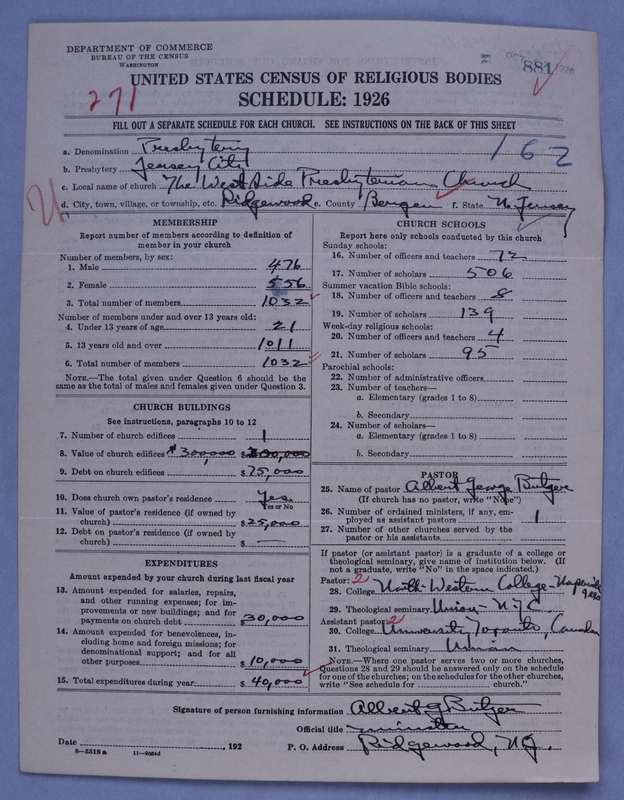 DEPARTMENT OF COMMERCE
BUREAU OF THE CENSUS
WASHINGTON
881
UNITED STATES CENSUS OF RELIGIOUS BODIES
271
SCHEDULE: 1926
FILL OUT A SEPARATE SCHEDULE FOR EACH CHURCH. SEE INSTRUCTIONS ON THE BACK OF THIS SHEET
162
a. Denomination Presbytery
b. Presbytery Jersey City
c. Local name of church The West Side Presbyterian Church
d. City, town, village, or township, etc. Ridgewood e. County Bergen f. State N. Jersey
MEMBERSHIP
Report number of members according to definition of
member in your church
Number of members, by sex:
1. Male 476
2. Female 556
3. Total number of members 1032
Number of members under and over 13 years old:
4. Under 13 years of age 21
5. 13 years old and over 1011
6. Total number of members 1032
NOTE.—The total given under Question 6 should be the
same as the total of males and females given under Question 3.
CHURCH BUILDINGS
See instructions, paragraphs 10 to 12
7. Number of church edifices 1
8. Value of church edifices $300,000 $
9. Debt on church edifices $75,000
10. Does church own pastor's residence Yes.
Yes or No
11. Value of pastor's residence (if owned by
church) $25,000
12. Debt on pastor's residence (if owned by
church) $ —
EXPENDITURES
Amount expended by your church during last fiscal year
13. Amount expended for salaries, repairs,
and other running expenses; for im-
provements or new buildings; and for
payments on church debt $30,000
14. Amount expended for benevolences, in-
cluding home and foreign missions; for
denominational support; and for all
other purposes $10,000
15. Total expenditures during year $40,000
CHURCH SCHOOLS
Report here only schools conducted by this church
Sunday schools:
16. Number of officers and teachers 72
17. Number of scholars 506
Summer vacation Bible schools:
18. Number of officers and teachers 8
19. Number of scholars 139
Week-day religious schools:
20. Number of officers and teachers 4
21. Number of scholars 95
Parochial schools:
22. Number of administrative officers
23. Number of teachers—
a. Elementary (grades 1 to 8)
b. Secondary
24. Number of scholars—
a. Elementary (grades 1 to 8)
b. Secondary
PASTOR
25. Name of pastor Albert George Butzer
(If church has no pastor, write "No")
26. Number of ordained ministers, if any, em-
ployed as assistant pastors 1
27. Number of other churches served by the
pastor or his assistants
If pastor (or assistant pastor) is a graduate of a college or
theological seminary, give name of institution below. (If
not a graduate, write "No" in the space indicated.)
Pastor: 2
28. College North-Western College-
29. Theological seminary Union - N.Y.C.
Assistant pastor: 2
30. College University Toronto,
31. Theological seminary Union
NOTE.—Where one pastor serves two or more churches,
Questions 28 and 29 should be answered only on the schedule
for one of the churches; on the schedules for the other churches,
write "See schedule for church."
Signature of person furnishing information Albert G Butzer
Official title minister
Date , 192
P. O. Address Ridgewood, N.J.
8—5518 a